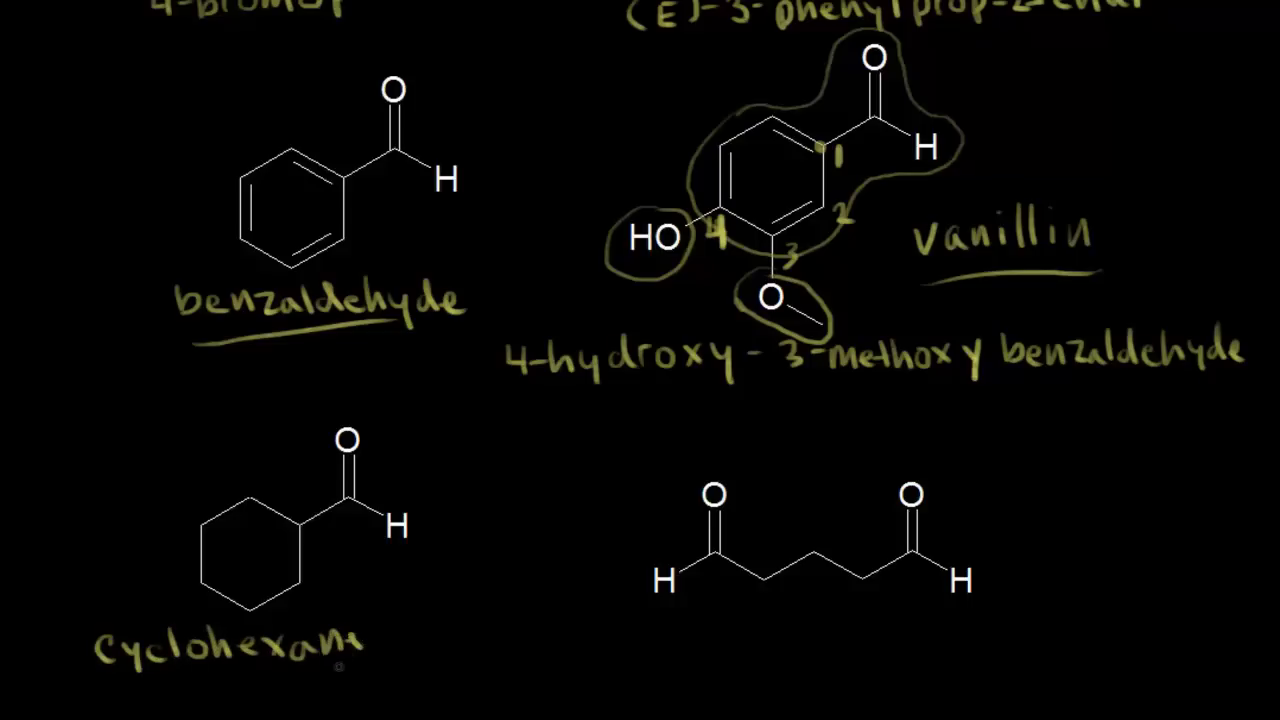 4-bromop
(E)-3-phenylprop-2-enal
O
H
benzaldehyde
O
H
1
2
3
4
HO
O
vanillin
4-hydroxy-3-methoxy benzaldehyde
O
H
cyclohexane
O O
H H